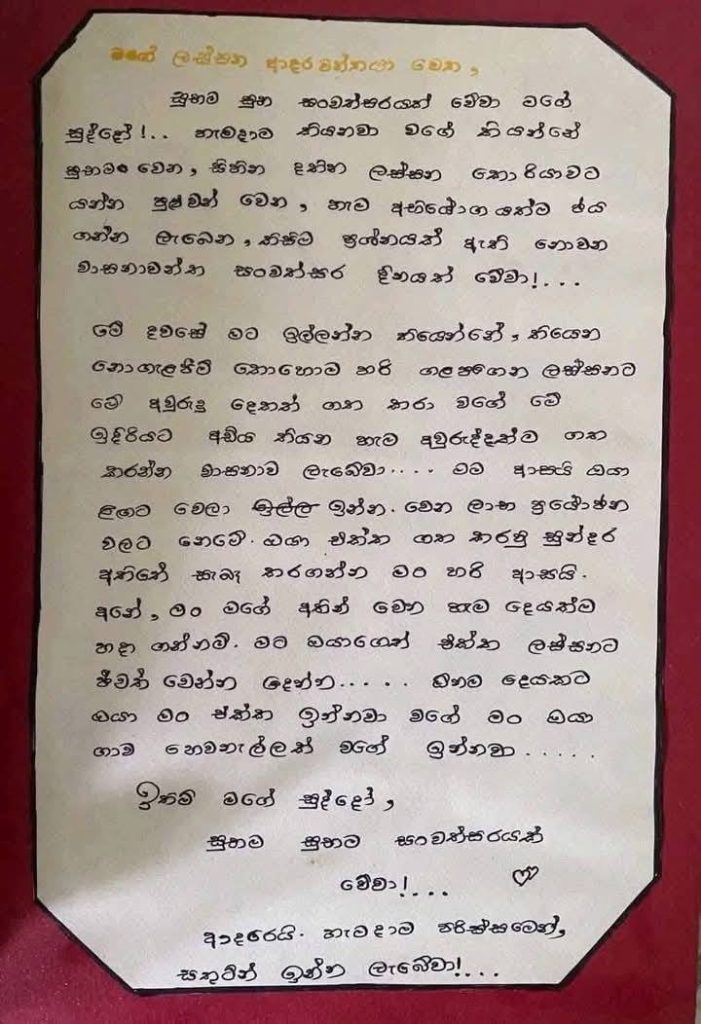 මගේ ලස්සන ආදරවන්තයා වෙත,
සුභම සුභ සංවත්සරයක් වේවා මගේ
සුද්දෝ!.. හැමදාම කියනවා වගේ කියන්නේ
සුභම වෙන, සිහින දකින ලස්සන කොරියාවට
යන්න පුළුවන් වෙන, හැම අභියෝගයක්ම ජය
ගන්න ලැබෙන, කිසිම ප්‍රශ්නයක් ඇති නොවන
වාසනාවන්ත සංවත්සර දිනයක් වේවා!...
මේ දවසේ මට ඉල්ලන්න තියෙන්නේ, තියෙන
නොගැලපීම් කොහොම හරි ගලපගෙන ලස්සනට
මේ අවුරුදු දෙකත් ගත කරා වගේ මේ
ඉදිරියට අඩිය තියන හැම අවුරුද්දක්ම ගත
කරන්න වාසනාව ලැබේවා.... මම ආසයි ඔයා
ළඟට වෙලා ඉල්ල ඉන්න. වෙන ලාභ ප්‍රයෝජන
වලට නෙමේ. ඔයා එක්ක ගත කරපු සුන්දර
අතීතේ සැබෑ කරගන්න මං හරි ආසයි.
අනේ, මං මගේ අතින් වෙන හැම දෙයක්ම
හදා ගන්නම්. මට ඔයාගෙත් එක්ක ලස්සනට
ජීවත් වෙන්න දෙන්න..... ඕනම දෙයකට
ඔයා මං එක්ක ඉන්නවා වගේ මං ඔයා
ගාව හෙවනැල්ලක් වගේ ඉන්නවා.....
ඉතිං මගේ සුද්දෝ,
සුභම සුභම සංවත්සරයක්
වේවා!...
ආදරෙයි. හැමදාම පරිස්සමෙන්,
සතුටින් ඉන්න ලැබේවා!...